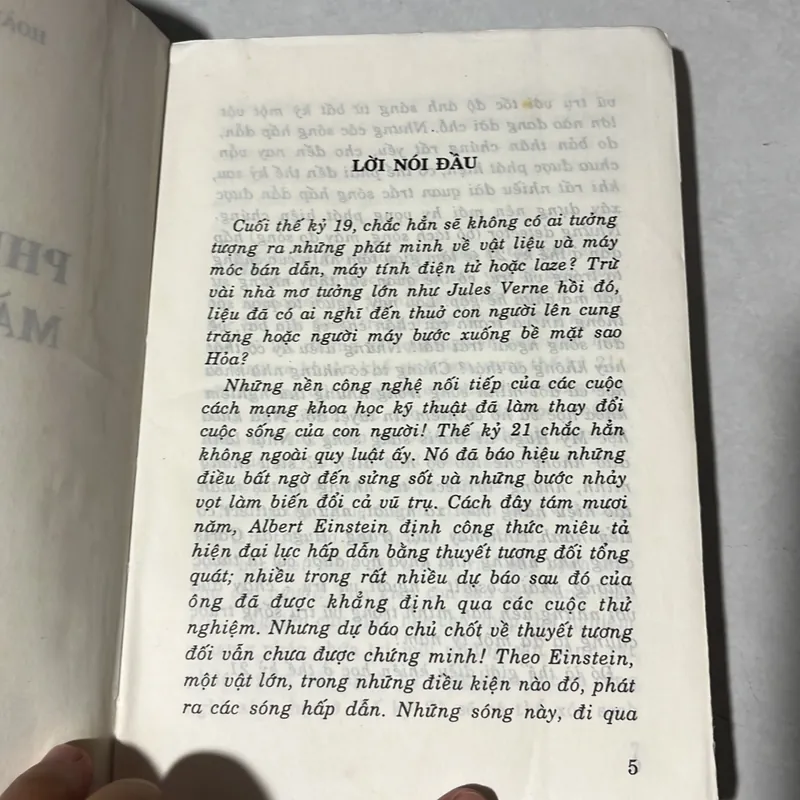 LỜI NÓI ĐẦU
Cuối thế kỷ 19, chắc hẳn sẽ không có ai tưởng
tượng ra những phát minh về vật liệu và máy
móc bán dẫn, máy tính điện tử hoặc laze? Trừ
vài nhà mơ tưởng lớn như Jules Verne hồi đó,
liệu đã có ai nghĩ đến thuở con người lên cung
trăng hoặc người máy bước xuống bề mặt sao
Hỏa?
Những nền công nghệ nối tiếp của các cuộc
cách mạng khoa học kỹ thuật đã làm thay đổi
cuộc sống của con người! Thế kỷ 21 chắc hẳn
không ngoài quy luật ấy. Nó đã báo hiệu những
điều bất ngờ đến sửng sốt và những bước nhảy
vọt làm biến đổi cả vũ trụ. Cách đây tám mươi
năm, Albert Einstein định công thức miêu tả
hiện đại lực hấp dẫn bằng thuyết tương đối tổng
quát; nhiều trong rất nhiều dự báo sau đó của
ông đã được khẳng định qua các cuộc thử
nghiệm. Nhưng dự báo chủ chốt về thuyết tương
đối vẫn chưa được chứng minh! Theo Einstein,
một vật lớn, trong những điều kiện nào đó, phát
ra các sóng hấp dẫn. Những sóng này, đi qua
5